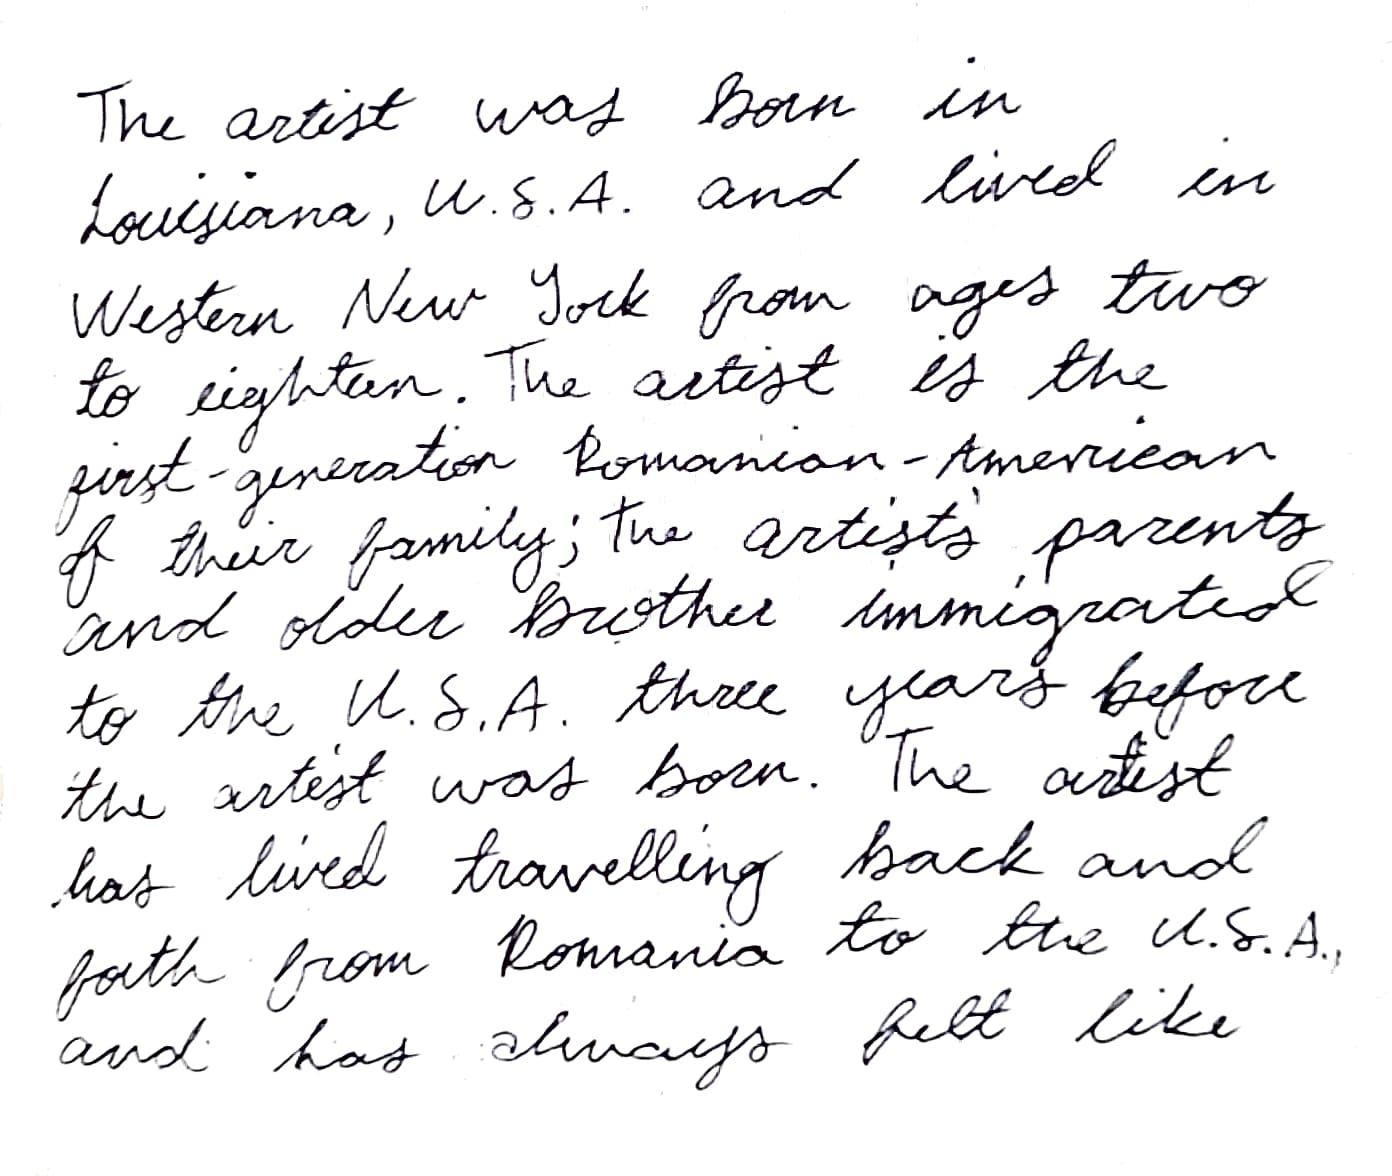 The artist was born in
Louisiana, U.S.A. and lived in
Western New York from ages two
to eighteen. The artist is the
first-generation Romanian-American
of their family; the artist's parents
and older brother immigrated
to the U.S.A. three years before
the artist was born. The artist
has lived travelling back and
forth from Romania to the U.S.A.,
and has always felt like